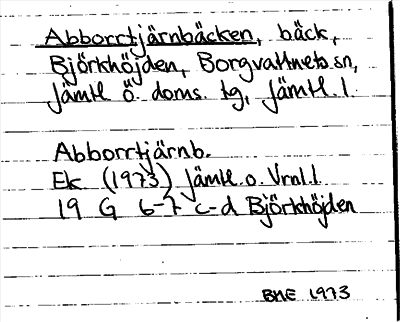 Abborrtjärnbäcken, bäck,
Björkhöjden, Borgvattnets sn,
Jämtl Ö. doms. tg, Jämtl. l.
Abborrtjärnb.
Ek (1973) Jämtl. o. Vrnl. l.
19 G 6-7 c-d Björkhöjden
BME 1973